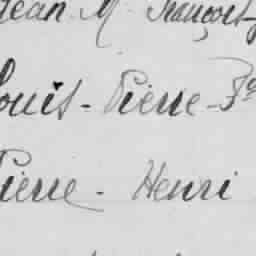 Jean M. François-
Louis - Pierre - Fs
Pierre - Henri